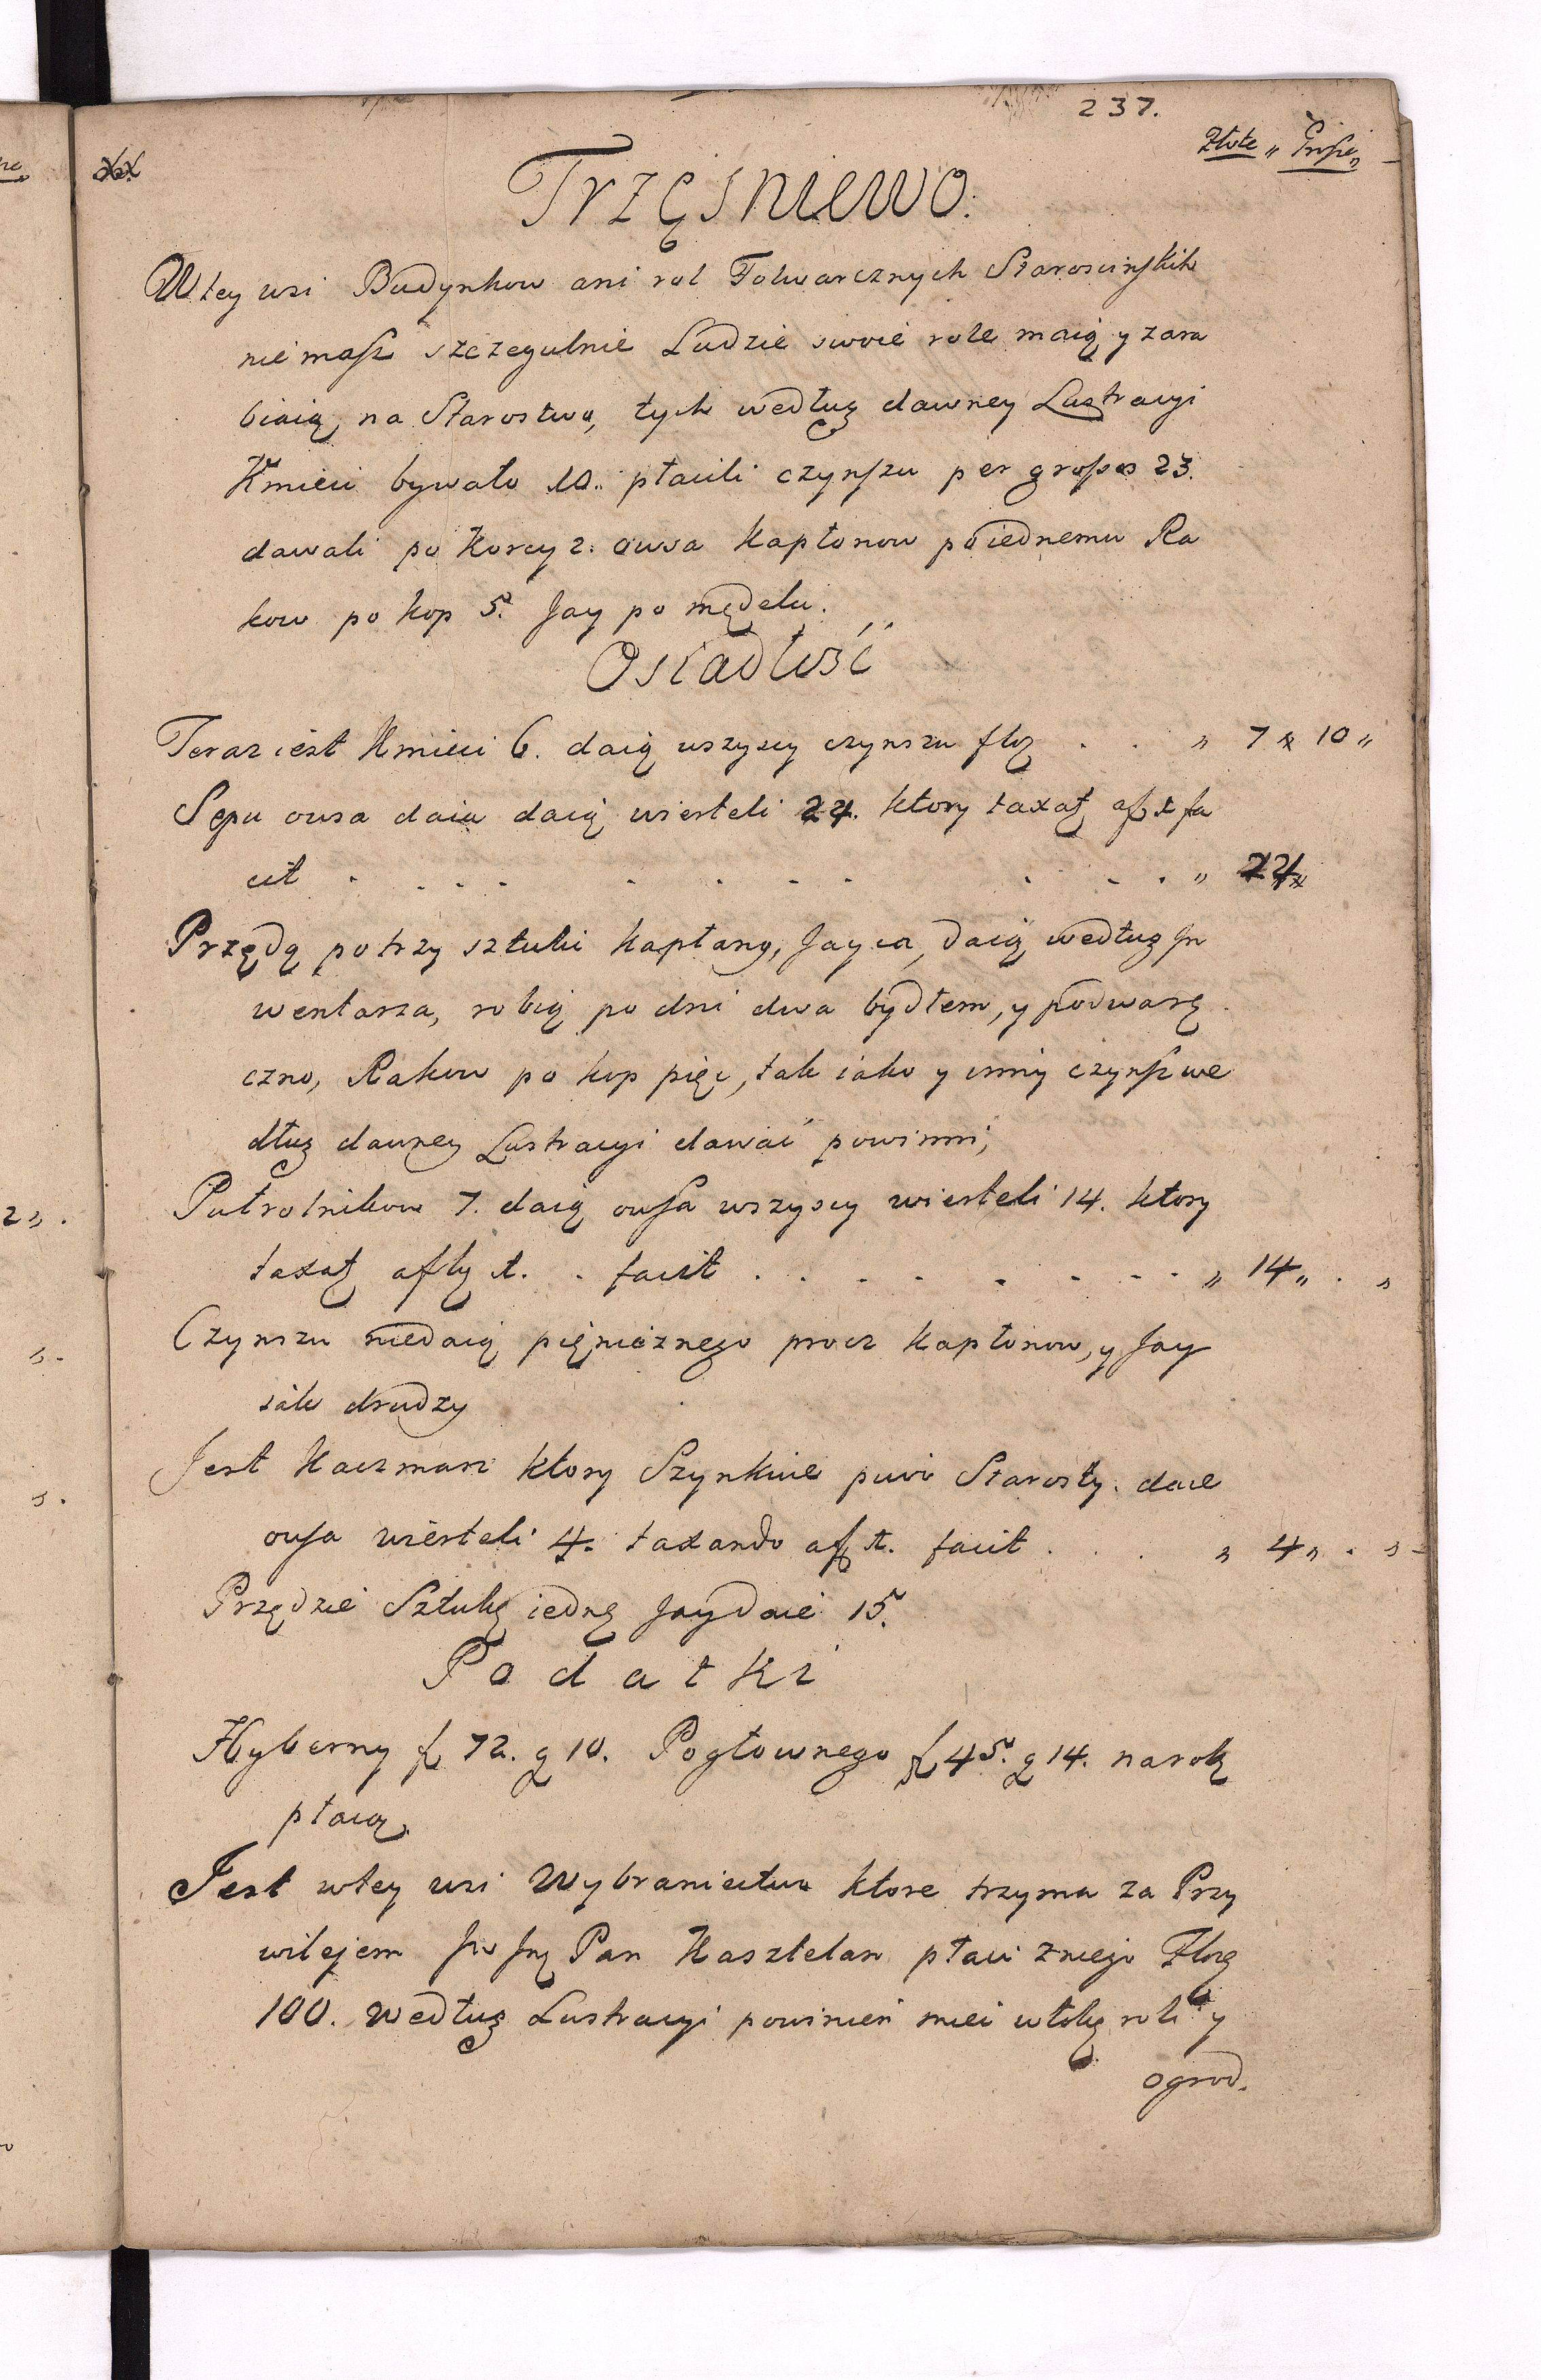 237.
Złote „ Grosze
xx
Trzęśniewo.
W tey wsi Budynkow ani rol Folwarcznych Staroscinskich
nie masz szczegulnie Ludzie swoie role maią y zara
biaią na Starostwo, tych według dawney Lustracyi
Kmieci bywało 10. płacili czynszu per grossos 23.
dawali po Korcy 2. owsa Kapłonow po iednemu Ra
kow po kop 5. Jay po mędelu.
Osiadłość
Teraz iest Kmieci 6. daią wszyscy czynszu flg . . „ 7 „ 10 „
Sepu owsa daia daią wierteli 24. ktory taxatg a f 1 fa
cit . . . . . . . . . . . „ 24 „
Przędą po trzy sztuki kapłany, Jayca, daią według In
wentarza, robią po dni dwa bydłem, y podwarę
czno, Rakow po kop pięc, tak iako y inny czynsz we
dług dawney Lustracyi dawać powinni,
Pułrolnikow 7. daią owsa wszyscy wierteli 14. ktory
taxatg a flg 1. . facit . . . . . . . . „ 14 „ . „
Czynszu niedaią pięnieznego procz kapłonow, y Jay
iak drudzy
Jest Kaczmarz ktory Szynkuie piwo Starosty. daie
owsa wierteli 4. taxando a f 1. facit . . . „ 4 „ . „
Przędzie Sztukę iednę Jay daie 15.
Podatki
Hyberny f 72. g 10. Pogłownego f 45. g 14. na rok
płacą.
Jest w tey wsi Wybraniectwo ktore trzyma za Przy
wilejem Jw Jmć Pan Kasztelan płaci z niego Złotg
100. według Lustracyi powinien miec włokę roli y
ogrod.